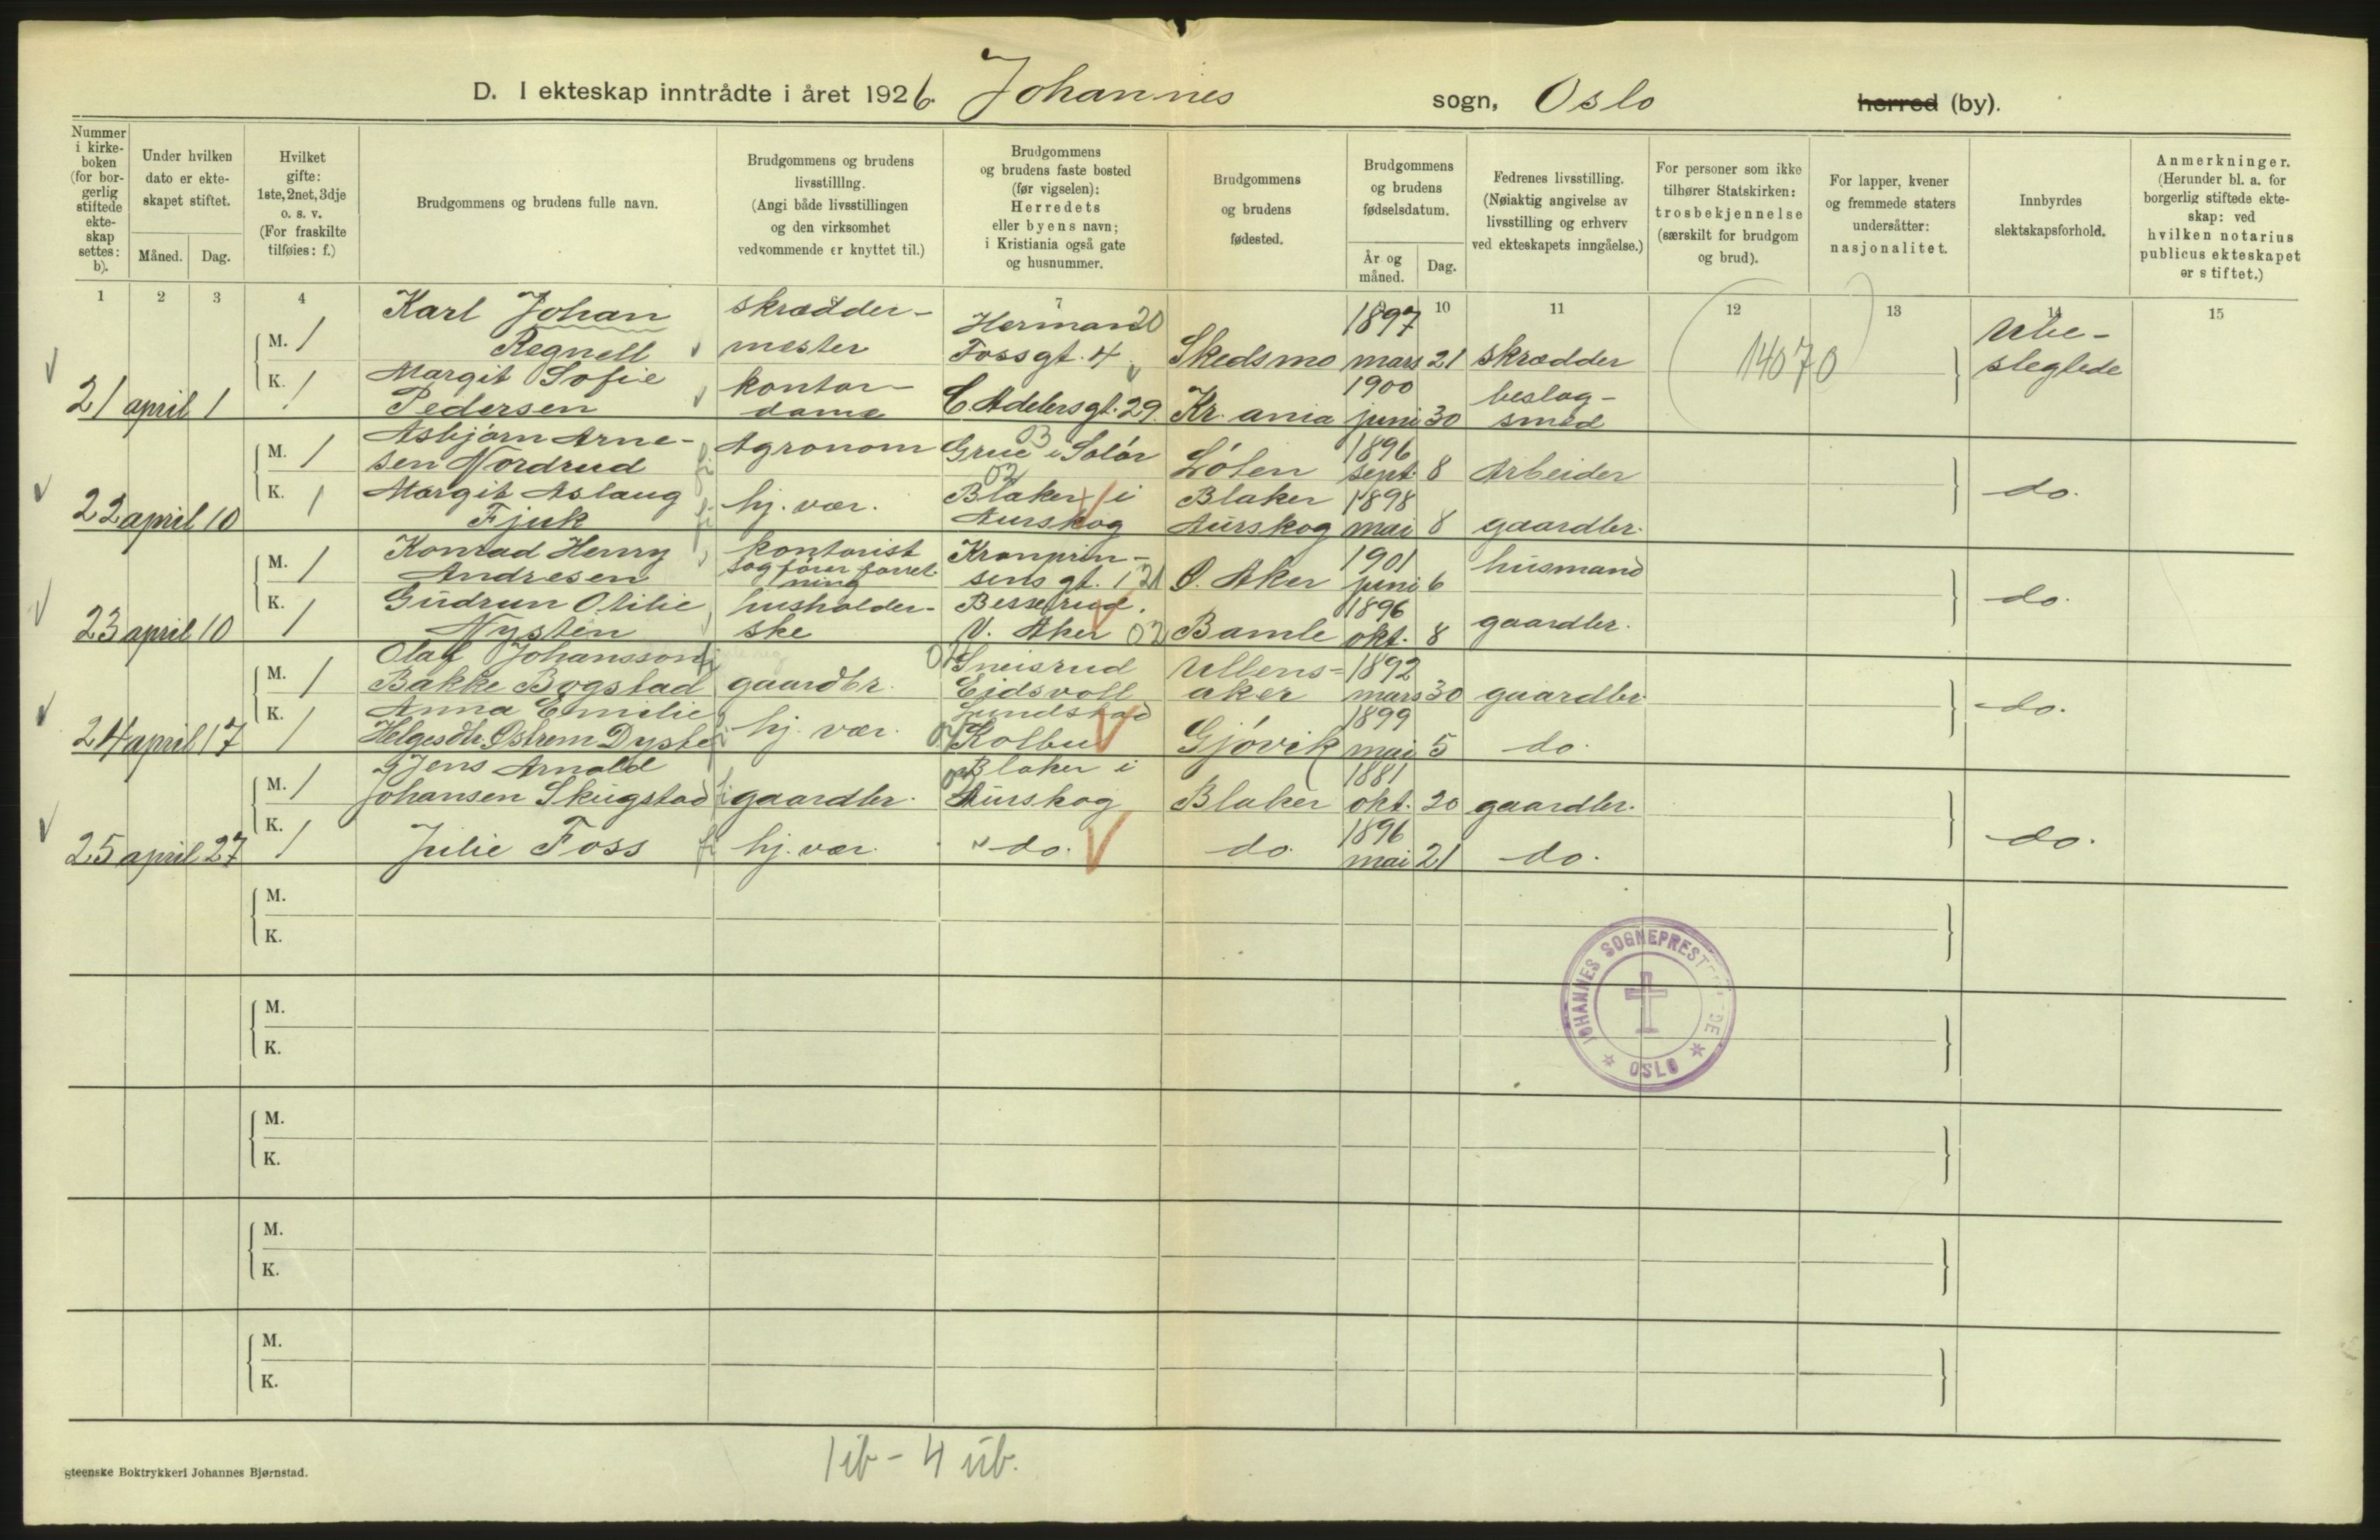 D. I ekteskap inntrådte i året 1926. Johannes sogn, Oslo herred (by).
Nummer i kirke-boken (for bor-gerlig stiftede ekte-skap settes: b).
Under hvilken dato er ekte-skapet stiftet.
Måned. Dag.
Hvilket gifte: 1ste, 2net, 3dje o. s. v. (For fraskilte tilføies: f.)
Brudgommens og brudens fulle navn.
Brudgommens og brudens livsstilling. (Angi både livsstillingen og den virksomhet vedkommende er knyttet til.)
Brudgommens og brudens faste bosted (før vigselen): Herredets eller byens navn; i Kristiania også gate og husnummer.
Brudgommens og brudens fødested.
Brudgommens og brudens fødselsdatum.
År og måned. Dag.
Fedrenes livsstilling. (Nøiaktig angivelse av livsstilling og erhverv ved ekteskapets inngåelse.)
For personer som ikke tilhører Statskirken: trosbekjennelse (særskilt for brudgom og brud).
For lapper, kvener og fremmede staters undersåtter: nasjonalitet.
Innbyrdes slektskapsforhold.
Anmerkninger. (Herunder bl. a. for borgerlig stiftede ekte-skap: ved hvilken notarius publicus ekteskapet er stiftet.)
1 2 3 4 7 10 11 12 13 14 15
M. 1 Karl Johan Regnell skrædder-mester Herman Fossgt. 4 20 Skedsmo 1897 mars 21 skrædder 14070 Ube-sleglede
21 april 1 K. 1 Margit Sofie Pedersen kontor-dame C. Adelersgt. 29. Kr. ania 1900 juni 30 beslag-smed
M. 1 Asbjørn Arne-sen Nordrud Agronom Grue i Solør 03 Løten 1896 sept. 8 Arbeider do.
22 april 10 K. 1 Margit Aslaug Fjuk hj. vær. 02 Blaker i Aurskog Blaker Aurskog 1898 mai 8 gaardbr.
M. 1 Konrad Henry Andresen kontorist sagfører forret-ning Kronprin-sens gt. 1 21 Ø. Aker 1901 juni 6 husmand do.
23 april 10 K. 1 Gudrun Otilie Nysten husholder-ske Besserud. V. Aker 02 Bamle 1896 okt. 8 gaardbr.
M. 1 Olaf Johansson Bakke Bogstad gaardbr. Sneisrud Eidsvoll Ullens-aker 1892 mars 30 gaardbr. do.
24 april 17 K. 1 Anna Emilie Helgesdtr. Østrem Dyste hj. vær. Lundstad Kolbu Gjøvik 1899 mai 5 do.
M. 1 Jens Arnold Johansen Skugstad gaardbr. Blaker i Aurskog Blaker 1881 okt. 20 gaardbr. do.
25 april 27 K. 1 Julie Foss hj. vær. do. do. 1896 mai 21 do.
M.
K.
M.
K.
M.
K.
M.
K.
M.
K.
JOHANNES SOGNEPREST
OSLO
1 ib - 4 ub.
Steenske Boktrykkeri Johannes Bjørnstad.